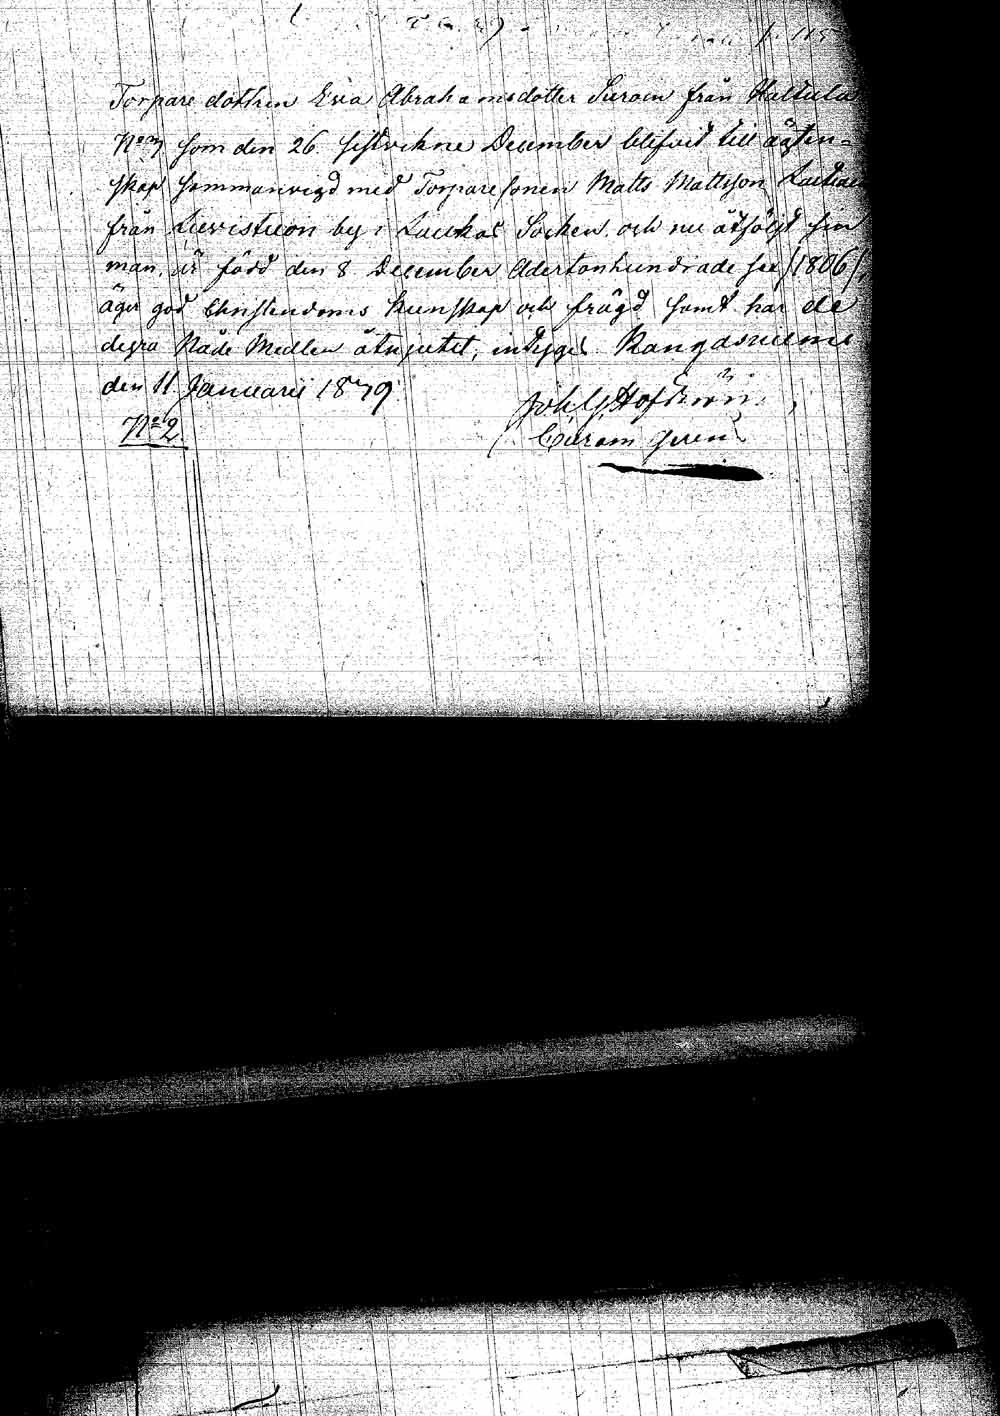 p. 115
Torpare dottren Eva Abrahamsdotter Suroin från Hallula
No 7 som den 26. sistvekne December blifvit till ägten-
skap sammanvigd med Torpare sonen Matts Mattsson
från by i Laukas Socken. och nu åtföljt sin
man, är född den 8 December Adertonhundrade sex /1806/,
äger god Christendoms Kunskap och frägd samt har de
degra Nåde Medlen åtnjutit, intygas. Kangasniemi
den 11 Januarii 1839.
Joh. G. Hofrén
No 2.
Curam gerens